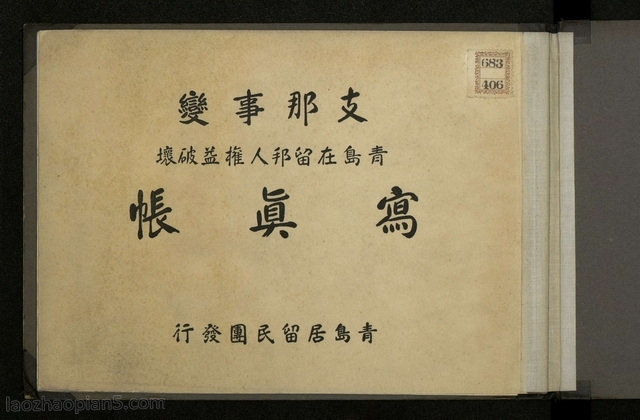 683
406
支那事變
青島在留邦人権益破壞
寫眞帳
青島居留民團發行
laozhaopian5.com